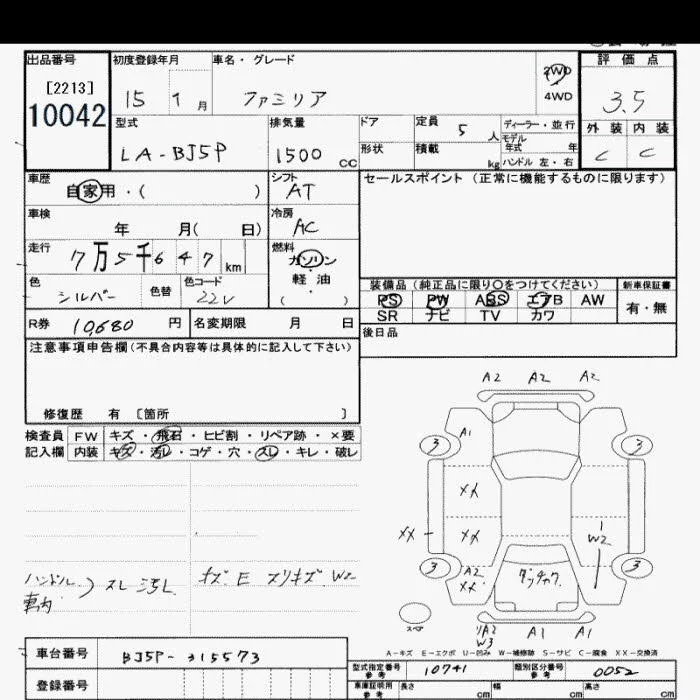 出品番号 初度登録年月 車名・グレード 2WD 4WD 評価点
[2213] 10042 15 9月 ファミリア 3.5
型式 排気量 ドア 定員 5人 ディーラー・並行 外装 内装
モデル年式 年
LA-BJ5P 1500 CC 形状 積載 kg ハンドル 左・右 C C
車歴 自家用・( ) シフト AT セールスポイント (正常に機能するものに限ります)
車検 年 月( 日) 冷房 AC
走行 7万5千647km 燃料 ガソリン・軽油
色 シルバー 色替 色コード 22V
装備品 (純正品に限り○をつけてください) 新車保証書
PS PW ABS エアB AW 有・無
SR ナビ TV カワ
R券 10,680円 名変期限 月 日 後日品
注意事項申告欄(不具合内容等は具体的に記入して下さい)
修復歴 有 [箇所 ]
検査員記入欄 FW キズ・飛石・ヒビ割・リペア跡・×要
内装 キズ・汚レ・コゲ・穴・スレ・キレ・破レ
A2 A2 A2
3 A1 3
XX
XX XX W2
3 A2 XX 3
スペア
A2 W3 A1 A1
ハンドル スレ 汚レ キズ E スリキズ W2
車内
A-キズ E-エクボ U-凹み W-補修跡 S-サビ C-腐食 XX-交換済
車台番号 BJ5P-315573
型式指定番号 参考 10741 類別区分番号 参考 0052
登録番号 車庫証明用 参考 長さ cm 幅 cm 高さ cm